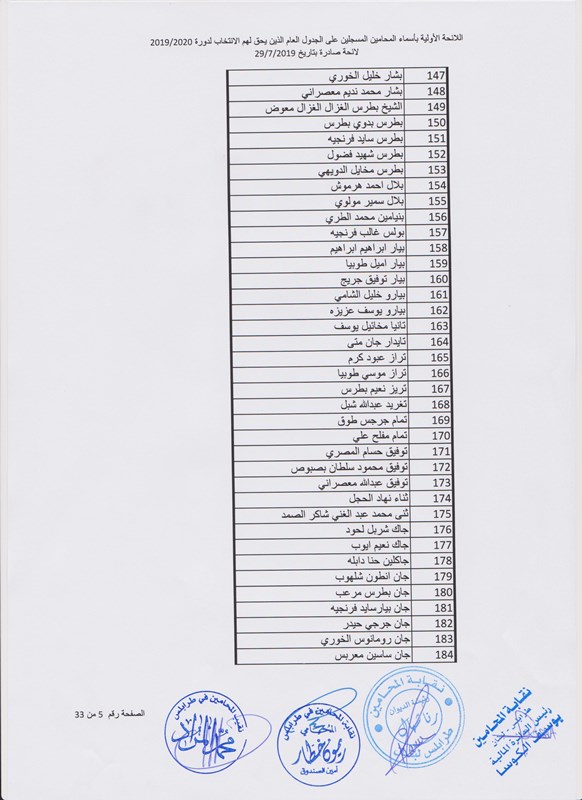 اللائحة الأولية بأسماء المحامين المسجلين على الجدول العام الذين يحق لهم الانتخاب لدورة 2019/2020
لائحة صادرة بتاريخ 29/7/2019
147 بشار خليل الخوري
148 بشار محمد نديم معصراني
149 الشيخ بطرس الغزال الغزال معوض
150 بطرس بدوي بطرس
151 بطرس سايد فرنجيه
152 بطرس شهيد فضول
153 بطرس مخايل الدويهي
154 بلال احمد هرموش
155 بلال سمير مولوي
156 بنيامين محمد الطري
157 بولس غالب فرنجيه
158 بيار ابراهيم ابراهيم
159 بيار اميل طوبيا
160 بيار توفيق جريج
161 بيارو خليل الشامي
162 بيارو يوسف عزيزه
163 تانيا مخائيل يوسف
164 تايدار جان متى
165 تراز عبود كرم
166 تراز موسي طوبيا
167 تريز نعيم بطرس
168 تغريد عبدالله شبل
169 تمام جرجس طوق
170 تمام مفلح علي
171 توفيق حسام المصري
172 توفيق محمود سلطان بصبوص
173 توفيق عبدالله معصراني
174 ثناء نهاد الحجل
175 ثنى محمد عبد الغني شاكر الصمد
176 جاك شربل لحود
177 جاك نعيم ايوب
178 جاكلين حنا دابله
179 جان انطون شلهوب
180 جان بطرس مرعب
181 جان بيارسايد فرنجيه
182 جان جرجي حيدر
183 جان رومانوس الخوري
184 جان ساسين معربس
نقابة المحامين
طرابلس
يوسف
نقابة المحامين
طرابلس
نقابة المحامين في طرابلس
ريمون خطار
أمين الصندوق
نقابة المحامين في طرابلس
محمد المراد
الصفحة رقم 5 من 33